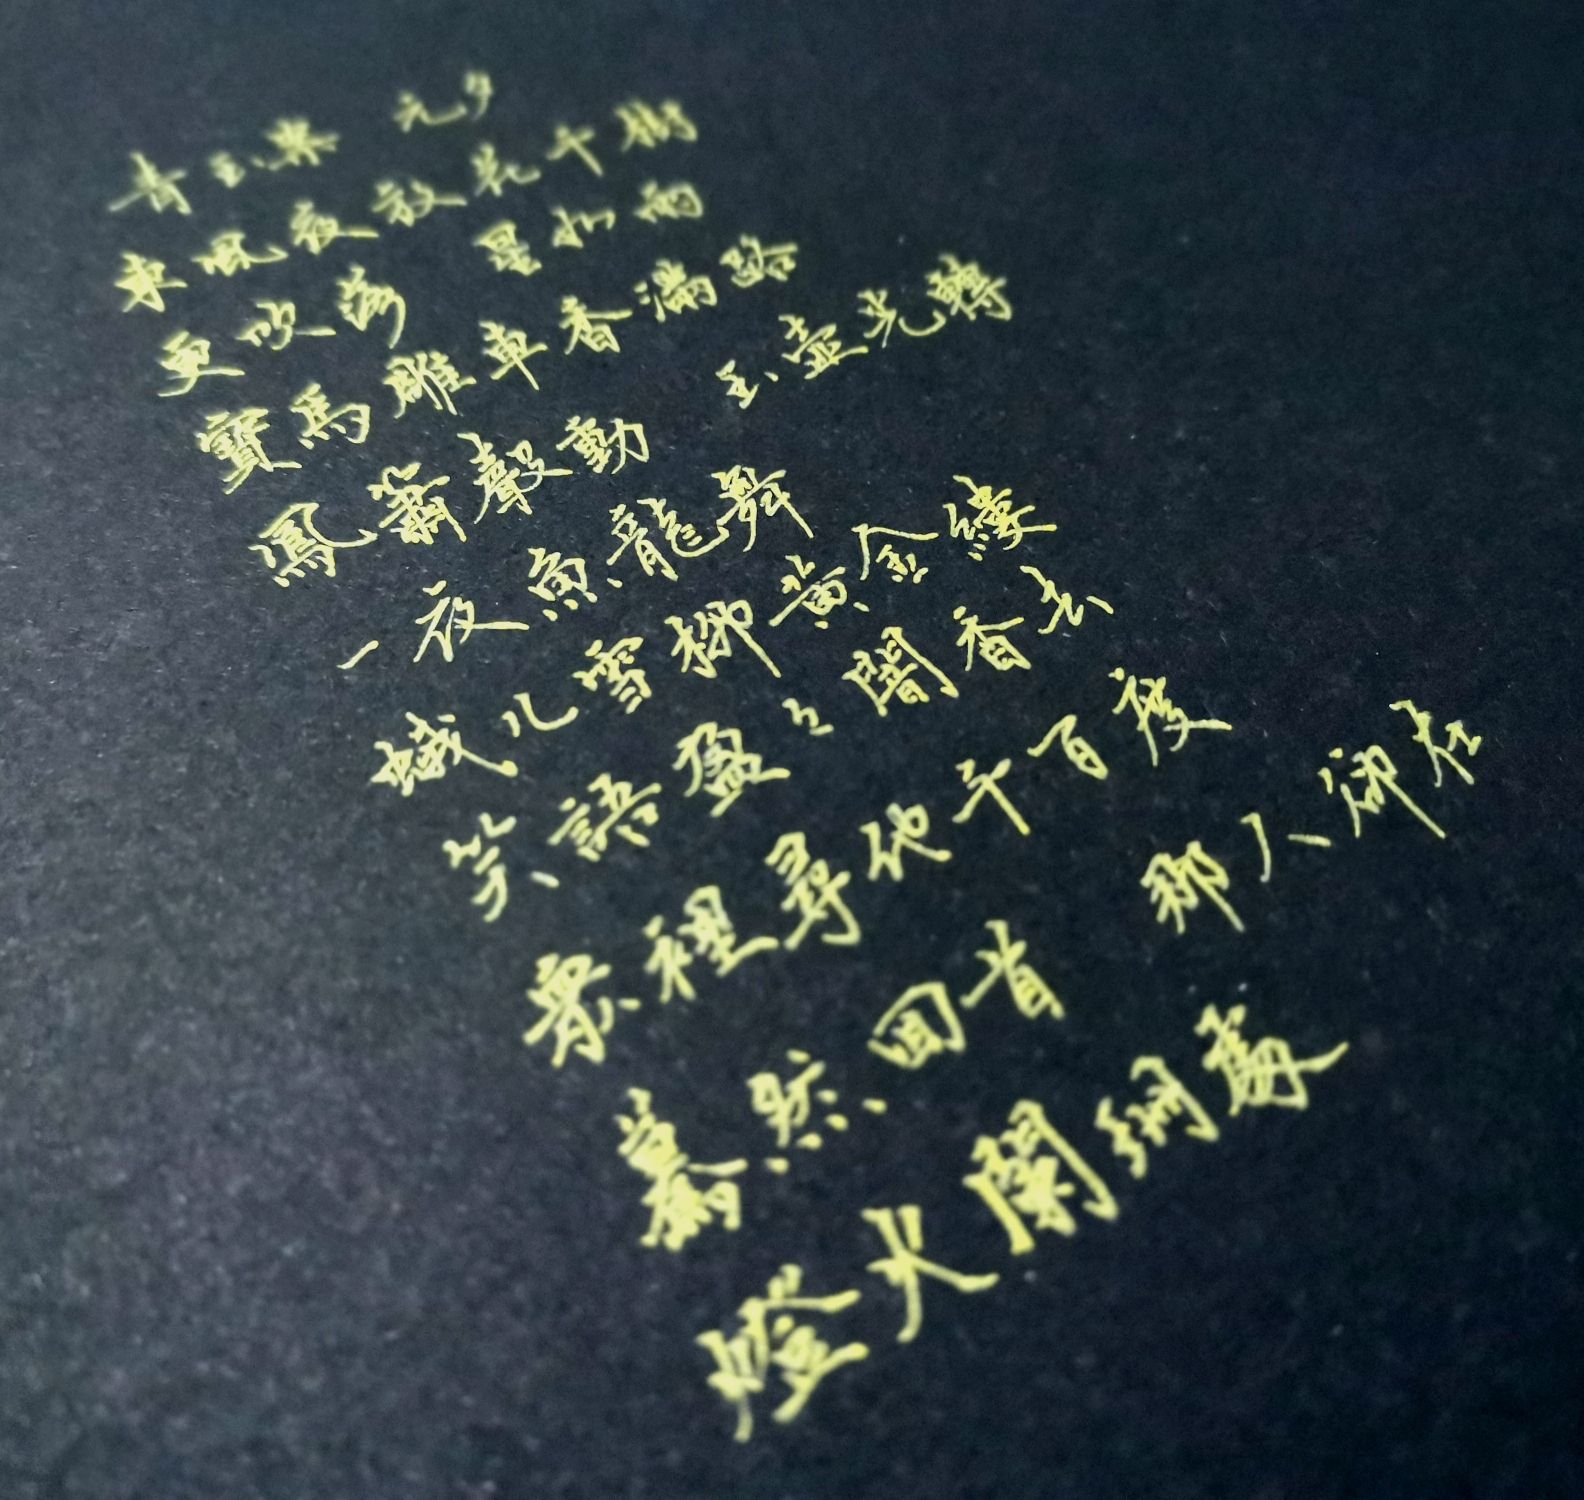 青玉案 元夕
東風夜放花千樹
更吹落 星如雨
寶馬雕車香滿路
鳳簫聲動 玉壺光轉
一夜魚龍舞
蛾儿雪柳黃金縷
笑語盈々闇香去
衆裡尋他千百度
驀然回首 那人卻在
燈火闌珊處